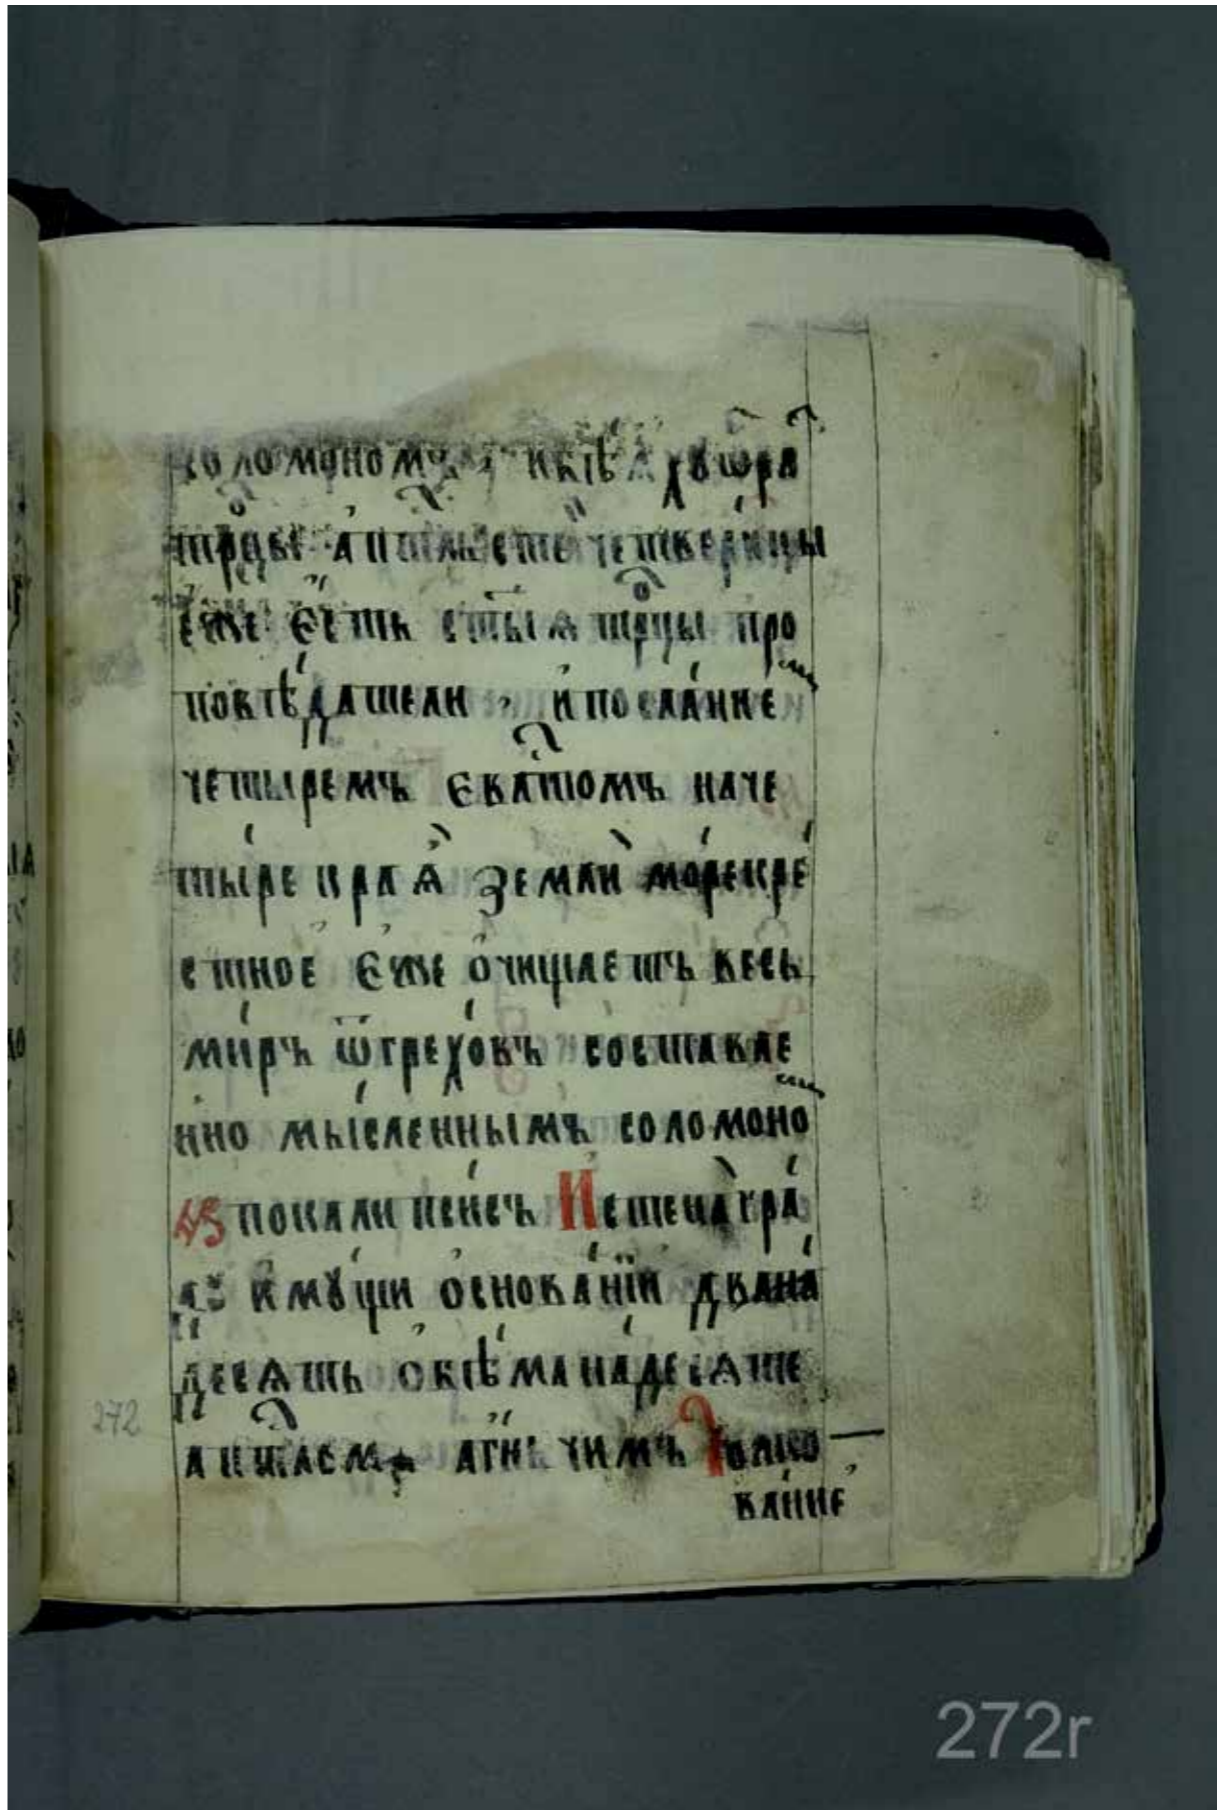 соломономъ, и бѣахꙋ ѡбра
трⷪцы апⷭлъсте четверицы
еже єсть ст҃ыѧ трⷪцы про
повѣдатели, и посланиемъ
четыремъ єваⷢ҇гломъ на че
тыре краѧ земли море кре
стное єже очищаетъ весь
миръ ѿ греховъ составле
нно мысленнымъ соломономъ
покалипсисъ И стена гра
дꙋ имꙋщи основанїи двана
десѧть обѣманадесѧте
апⷭломъ агньчимъ Толко
вание
272
272r